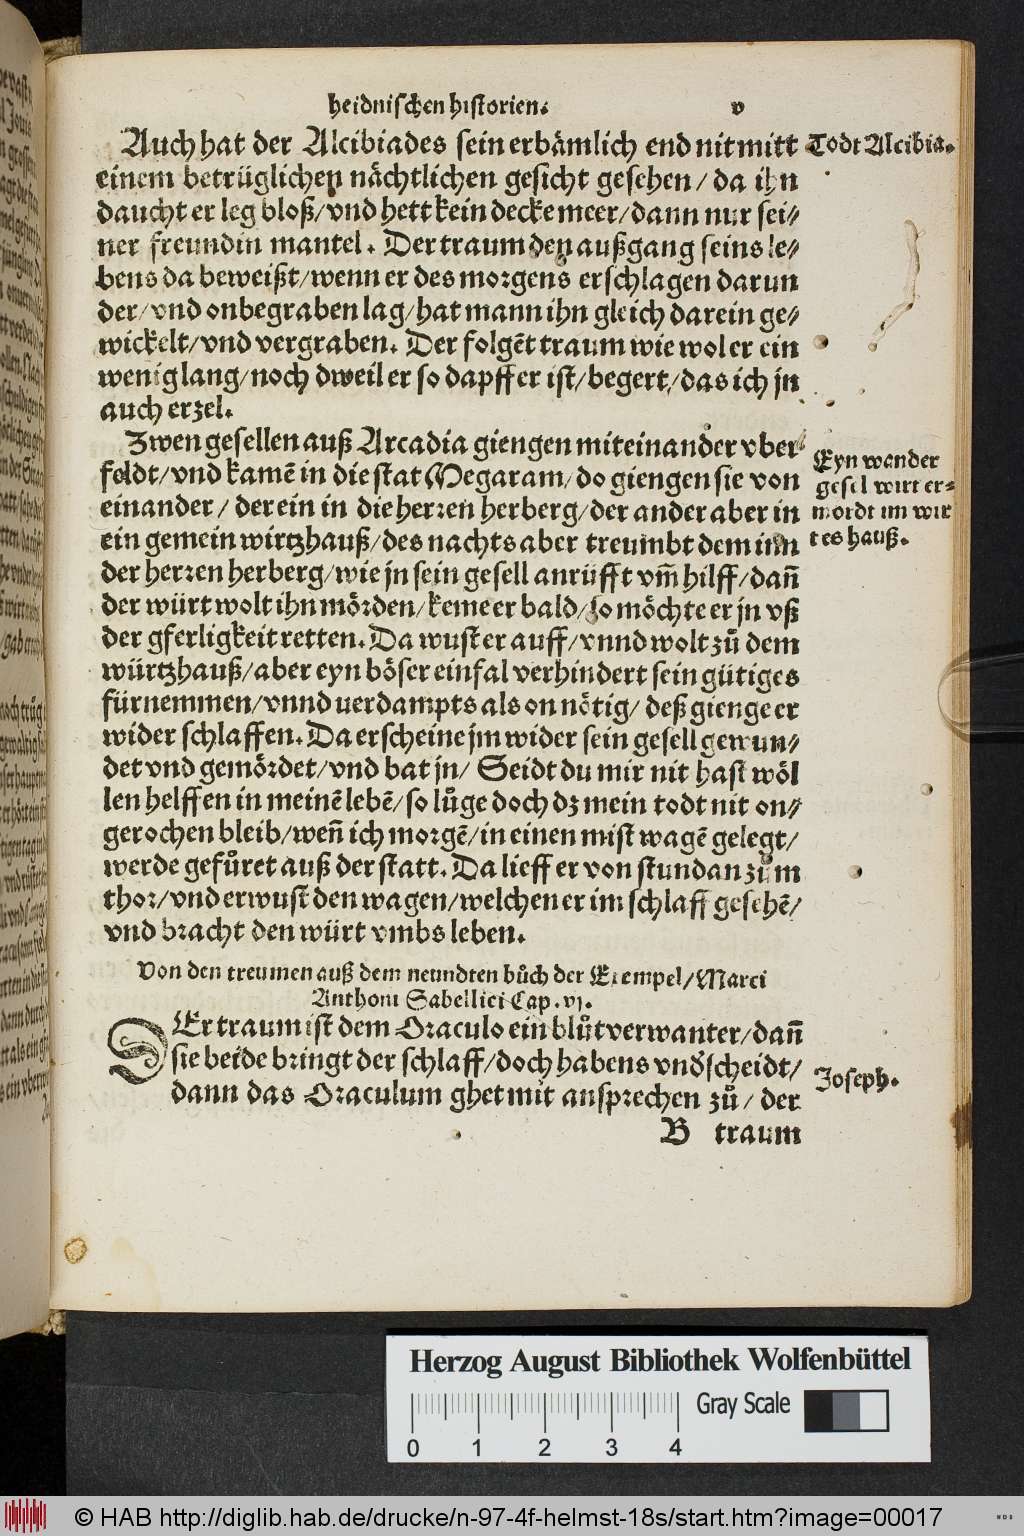 heidnischen historien. v
Auch hat der Alcibiades sein erbämlich end nit mitt
einem betrüglichen nächtlichen gesicht gesehen/ da ihn
daucht er leg bloß/ vnd hett kein decke meer/ dann nur sei⸗
ner freundin mantel. Der traum den außgang seins le⸗
bens da beweißt/ wenn er des morgens erschlagen darun
der/ vnd onbegraben lag/ hat mann ihn gleich darein ge⸗
wickelt/ vnd vergraben. Der folgēt traum wie wol er ein
wenig lang/ noch dweil er so dapffer ist/ begert/ das ich jn
auch erzel.
Todt Alcibia.
Zwen gesellen auß Arcadia giengen miteinander vber
feldt/ vnd kamē in die stat Megaram/ do giengen sie von
einander/ der ein in die herren herberg/ der ander aber in
ein gemein wirtzhauß/ des nachts aber treumbt dem inn
der herren herberg/ wie jn sein gesell anrüfft vm̄ hilff/ dan̄
der würt wolt ihn mörden/ keme er bald/ so möchte er jn vß
der gferligkeit retten. Da wust er auff/ vnnd wolt zů dem
würtzhauß/ aber eyn böser einfal verhindert sein gütiges
fürnemmen/ vnnd uerdampts als on nötig/ deß gienge er
wider schlaffen. Da erscheine jm wider sein gesell gewun⸗
det vnd gemördet/ vnd bat jn/ Seidt du mir nit hast wöl
len helffen in meinē lebē/ so lůge doch dz mein todt nit on⸗
gerochen bleib/ wen̄ ich morgē/ in einen mist wagē gelegt/
werde gefůret auß der statt. Da lieff er von stundan zům
thor/ vnd erwust den wagen/ welchen er im schlaff gesehē/
vnd bracht den würt vmbs leben.
Eyn wander
gesel wirt er⸗
mordt im wir
tes hauß.
Von den treumen auß dem neundten bůch der Exempel/ Marci
Anthoni Sabellici Cap. vj.
DEr traum ist dem Oraculo ein blůtverwanter/ dan̄
sie beide bringt der schlaff/ doch habens vnd̄scheidt/
dann das Oraculum ghet mit ansprechen zů/ der
Joseph.
B traum
Herzog August Bibliothek Wolfenbüttel
Gray Scale
0 1 2 3 4
© HAB http://diglib.hab.de/drucke/n-97-4f-helmst-18s/start.htm?image=00017